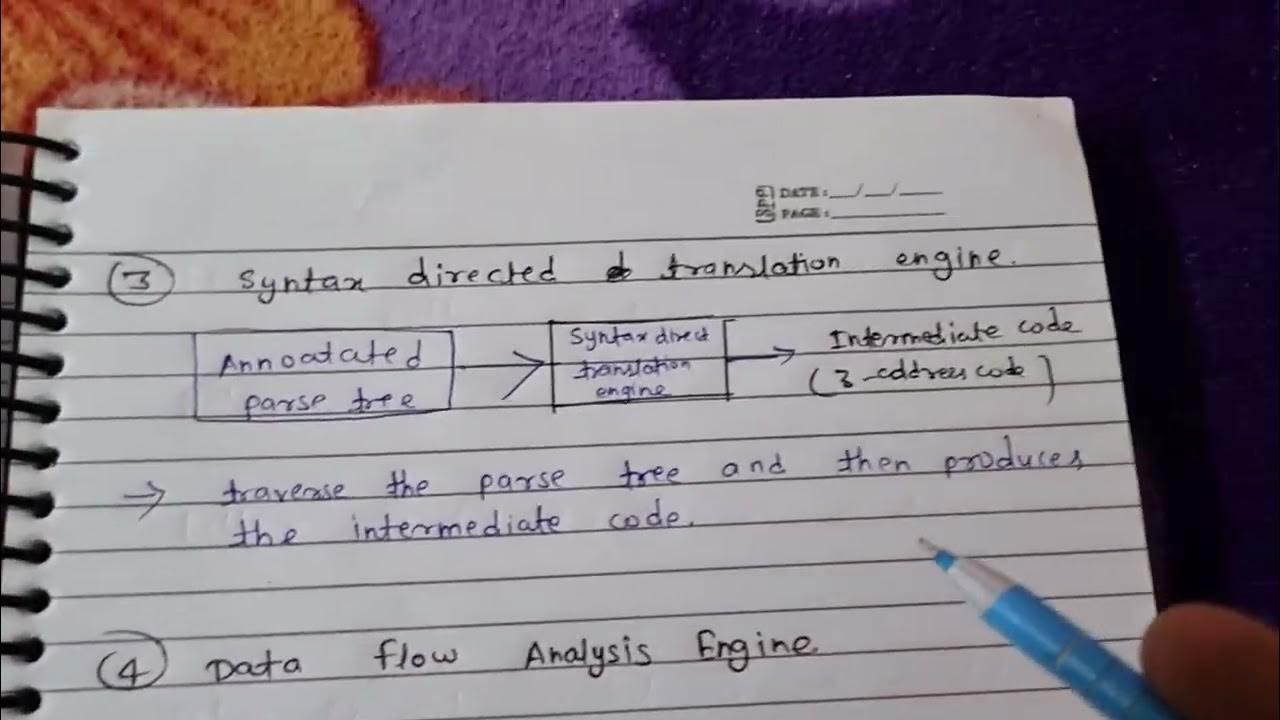 DATE: __/__/____
PAGE: ________
③ Syntax directed translation engine.
Annoatated
parse tree
Syntax direct
translation
engine
Intermediate code
(3-address code)
→ traverse the parse tree and then produces
the intermediate code.
④ Data flow Analysis Engine